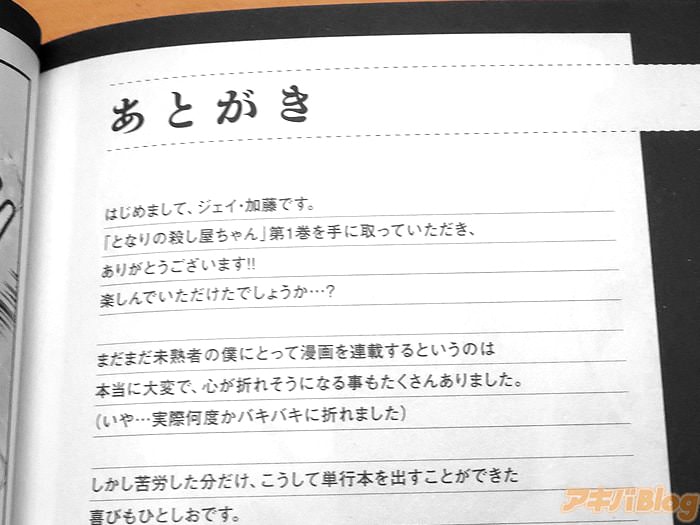 あとがき
はじめまして、ジェイ・加藤です。
「となりの殺し屋ちゃん」第1巻を手に取っていただき、
ありがとうございます!!
楽しんでいただけたでしょうか…?
まだまだ未熟者の僕にとって漫画を連載するというのは
本当に大変で、心が折れそうになる事もたくさんありました。
(いや…実際何度かバキバキに折れました)
しかし苦労した分だけ、こうして単行本を出すことができた
喜びもひとしおです。
アキバBlog